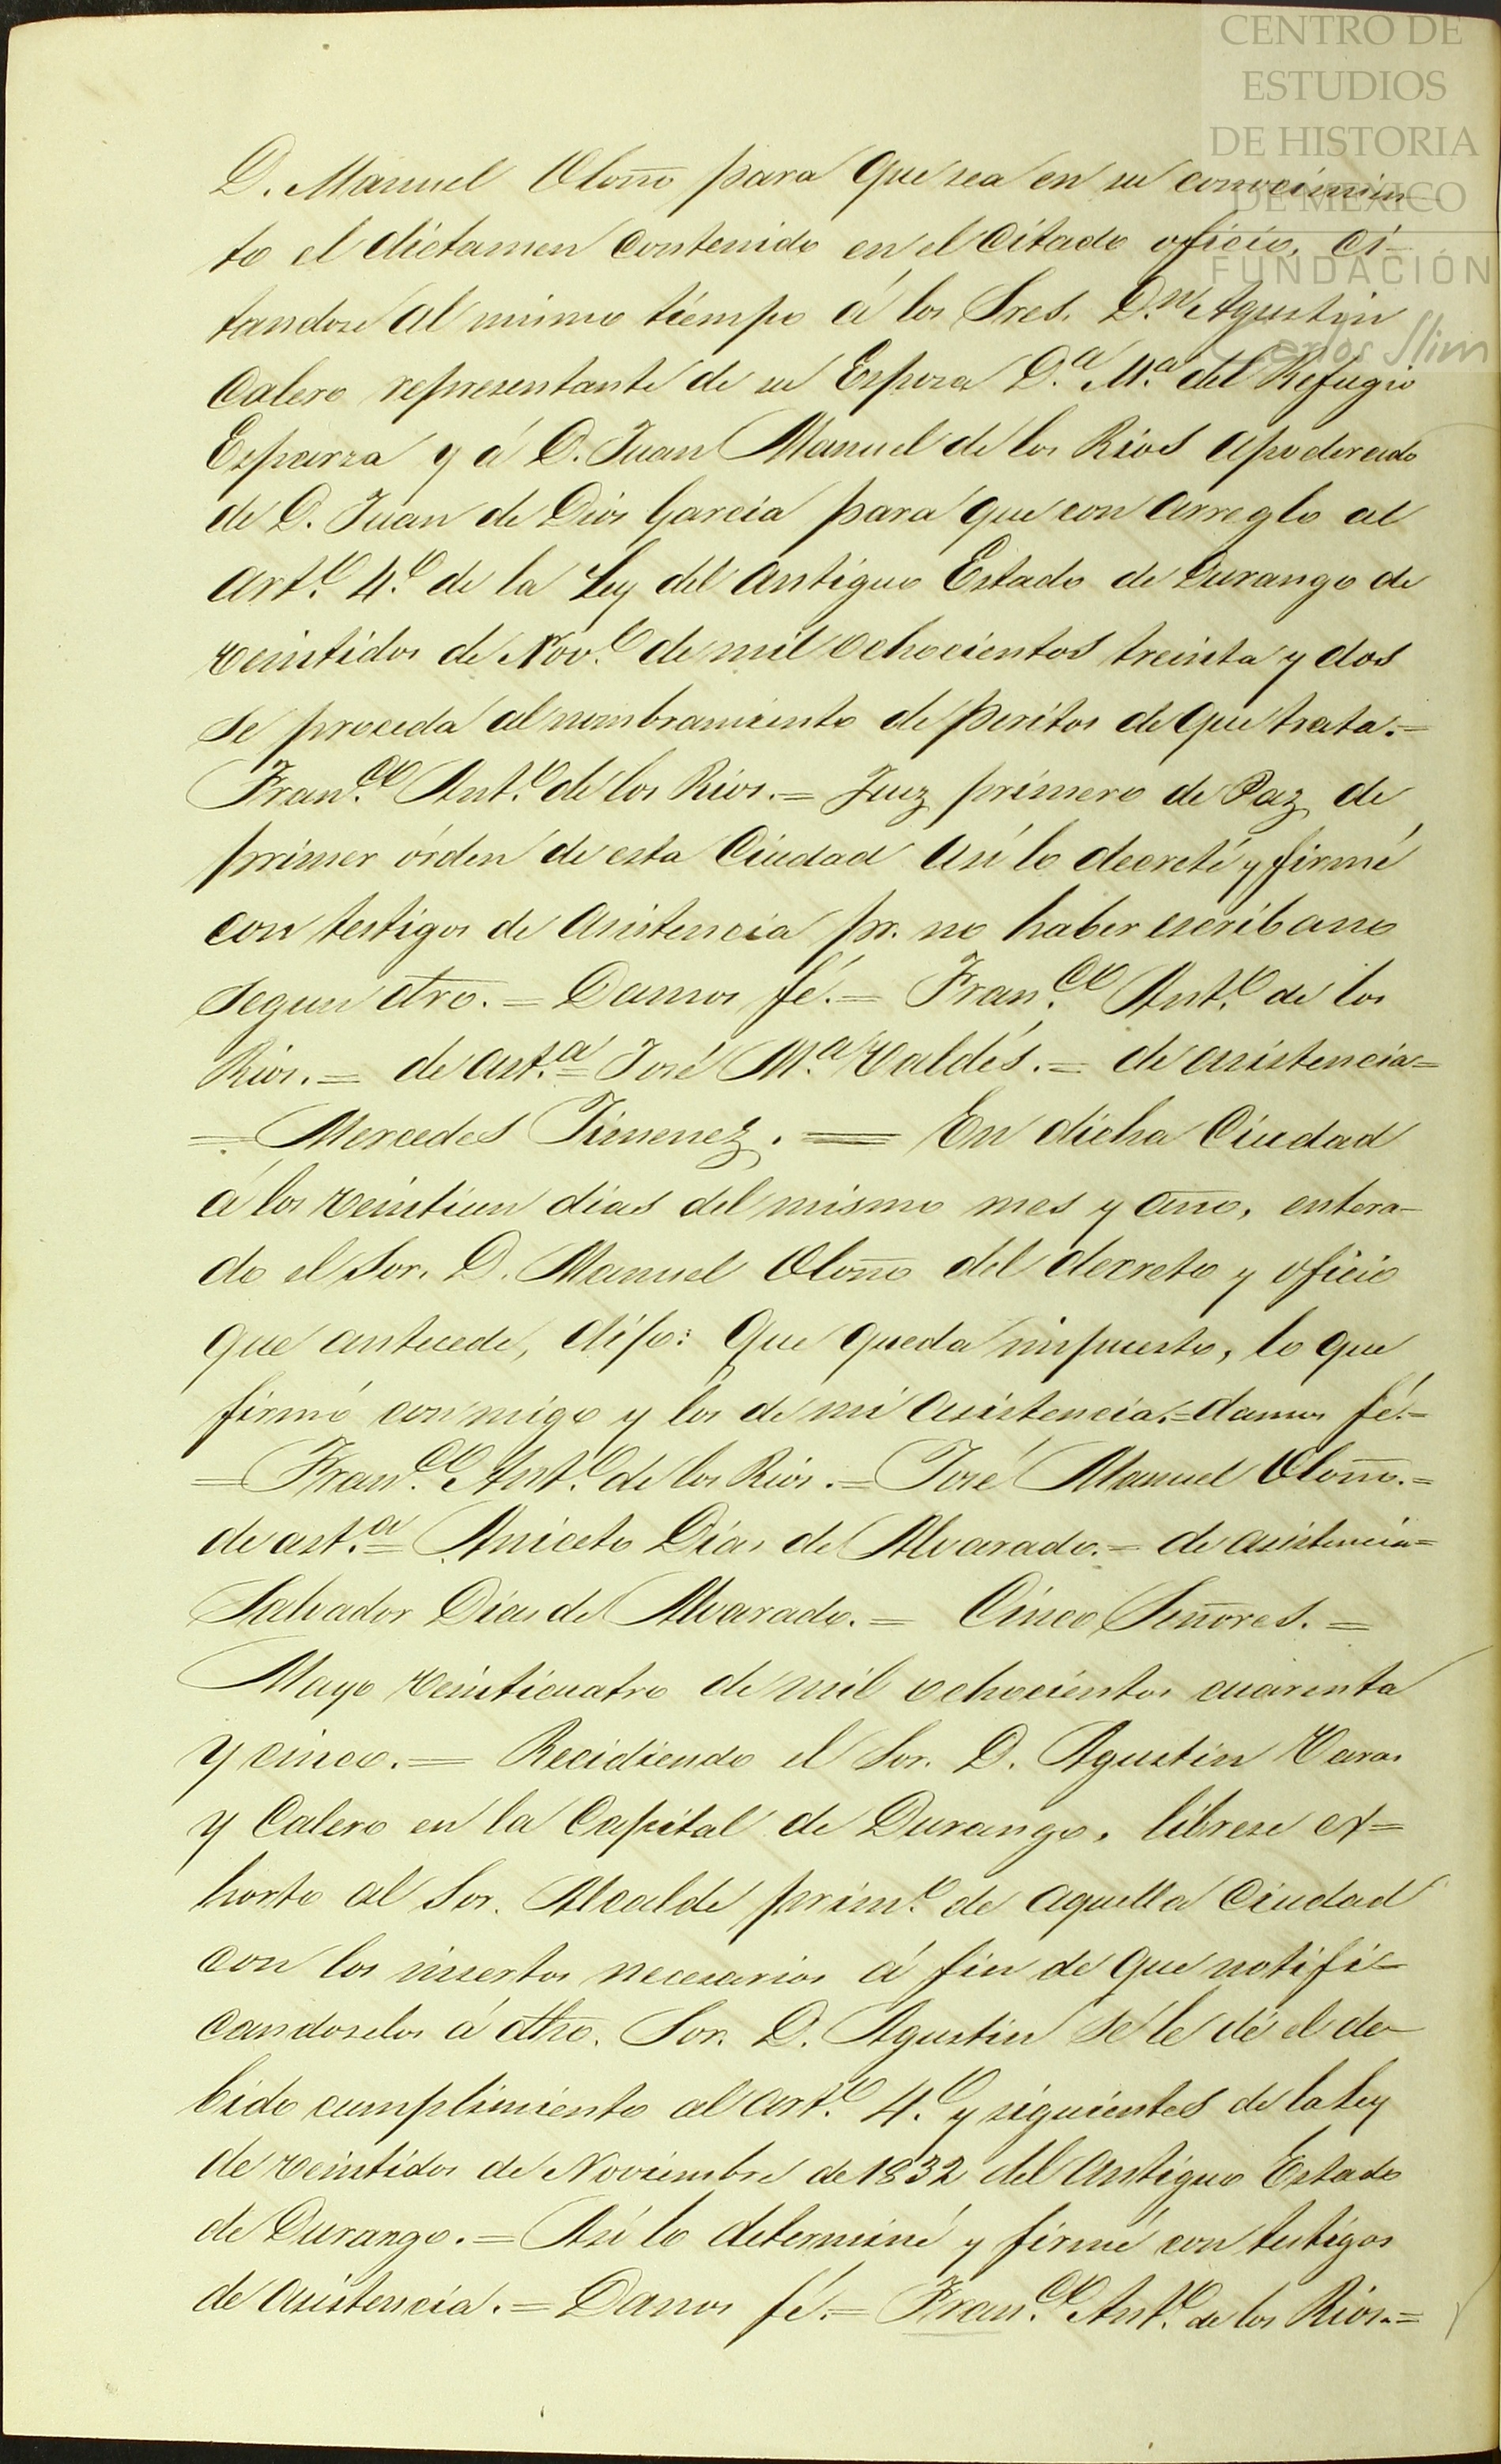 CENTRO DE
ESTUDIOS
DE HISTORIA
DE MÉXICO
FUNDACIÓN
Carlos Slim
D. Manuel Oloño para que sea en su conocimien-
to el dictamen contenido en el citado oficio, ci-
tandose al mismo tiempo á los Sres. D.n Agustin
Calero representante de su Esposa D.a M.a del Refugio
Esparza y á D. Juan Manuel de los Rios apoderado
de D. Juan de Dios Garcia para que con arreglo al
art.o 4.o de la Ley del antiguo Estado de Durango de
veintidos de Nov.e de mil ochocientos treinta y dos
se proceda al nombramiento de peritos de que trata.=
Fran.co Ant.o de los Rios.= Juez primero de Paz de
primer órden de esta Ciudad así lo decreté y firmé
con testigos de asistencia pr. no haber escribano
segun dro.= Damos fé.= Fran.co Ant.o de los
Rios.= de ast.a= José M.a Valdés.= de asistencia=
= Mercedes Jimenez.= En dicha Ciudad
á los veintiun dias del mismo mes y año, entera-
do el Sor. D. Manuel Oloño del decreto y oficio
que antecede, dijo: Que queda impuesto, lo que
firmó conmigo y los de mi asistencia.= damos fé.=
= Fran.co Ant.o de los Rios.= José Manuel Oloño.=
de ast.a= Aniceto Dias de Alvarado.= de asistencia=
Salvador Dias de Alvarado.= Cinco Señores.=
Mayo veinticuatro de mil ochocientos cuarenta
y cinco.= Recidiendo el Sor. D. Agustin Varas
y Calero en la Capital de Durango, librese ex=
horto al Sor. Alcalde prim.o de aquella Ciudad
con los insertos necesarios á fin de que notifi-
candoselos á dho. Sor. D. Agustin sé le dé el de-
bido cumplimiento al art.o 4.o y siguientes de la Ley
de veintidos de Noviembre de 1832 del antiguo Estado
de Durango.= Así lo determiné y firmé con testigos
de asistencia.= Damos fé.= Fran.co Ant.o de los Rios.=